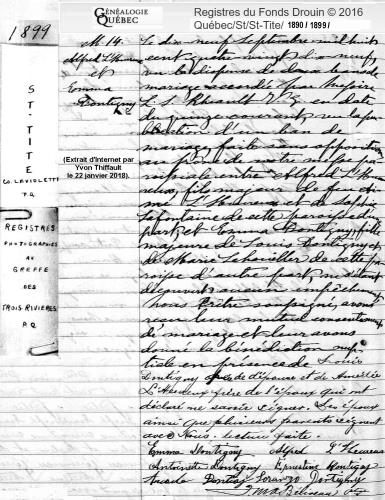 GÉNÉALOGIE
QUÉBEC
Registres du Fonds Drouin © 2016
Québec/St/St-Tite/ 1890 / 1899 /
1899
M. 14.
Alfred L'Heureux
et
Emma
Dontigny
(Extrait d'Internet par
Yvon Thiffault
le 22 janvier 2018).
ST-TITE
CO. LAVIOLETTE
P.Q.
REGISTRES
PHOTOGRAPHIÉS
AU
GREFFE
DES
TROIS-RIVIÈRES
P.Q.
Le dix neuf Septembre mil huit
cent quatre vingt dix neuf,
vu la dispense de deux bans de
mariage accordée par
en date
du quinze courant vu la pu-
blication d'un ban de
mariage faite sans opposition
au prône de notre messe pa-
roissiale entre Alfred L'Heu-
reux, fils majeur de feu
L'Heureux et de Sophie
Lafontaine de cette paroisse d'une
part et Emma Dontigny, fille
majeure de Louis Dontigny et
de Marie de cette pa-
roisse d'autre part ne s'étant
découvert aucun empêchement
Nous Prêtre soussigné, avons
reçu leur mutuel consentement
de mariage et leur avons
donné la bénédiction nup-
tiale en présence de Louis
Dontigny père de l'épouse et de
L'Heureux frère de l'époux qui ont
déclaré ne savoir signer. Les époux
ainsi que plusieurs parents signent
avec Nous. Lecture faite.
Emma Dontigny Alfred L'Heureux
Antoinette Dontigny Ernestine Dontigny
Dontigny